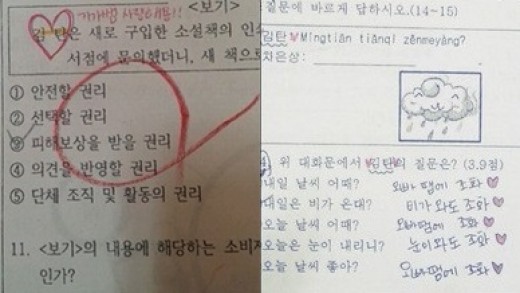 <보기>
김탄은 새로 구입한 소설책의 인
서점에 문의했더니, 새 책으로
① 안전할 권리
② 선택할 권리
③ 피해보상을 받을 권리
④ 의견을 반영할 권리
⑤ 단체 조직 및 활동의 권리
11. <보기>의 내용에 해당하는 소비자
인가?
질문에 바르게 답하시오.(14~15)
김탄♥Míngtiān tiānqì zěnmeyàng?
차은상:
위 대화문에서 김탄의 질문은? (3.9점)
내일 날씨 어때? 오빠 땜에 흐림♥
내일은 비가 온대? 비가 와도
오늘 날씨 어때? 오빠땜에
오늘은 눈이 내리니? 눈이와도
오늘 날씨 좋아? 오빠땜에